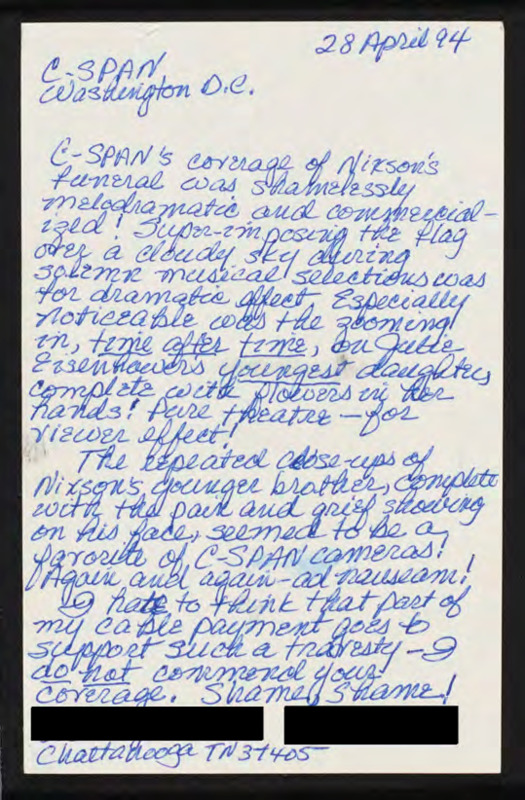 28 April 94
C-SPAN
Washington D.C.
C-SPAN's coverage of Nixson's
funeral was shamelessly
melodramatic and commercial-
ized! Super-imposing the flag
over a cloudy sky during
solemn musical selections was
for dramatic affect. Especially
noticeable was the zooming
in, time after time, on Julie
Eisenhowers youngest daughter,
complete with flowers in her
hands! Pure theatre – for
viewer effect!
The repeated close-ups of
Nixson's younger brother, complete
with the pain and grief showing
on his face, seemed to be a
favorite of C-SPAN cameras!
Again and again – ad nauseam!
I hate to think that part of
my cable payment goes to
support such a travesty – I
do not commend your
coverage. Shame, Shame!
Chattanooga TN 37405